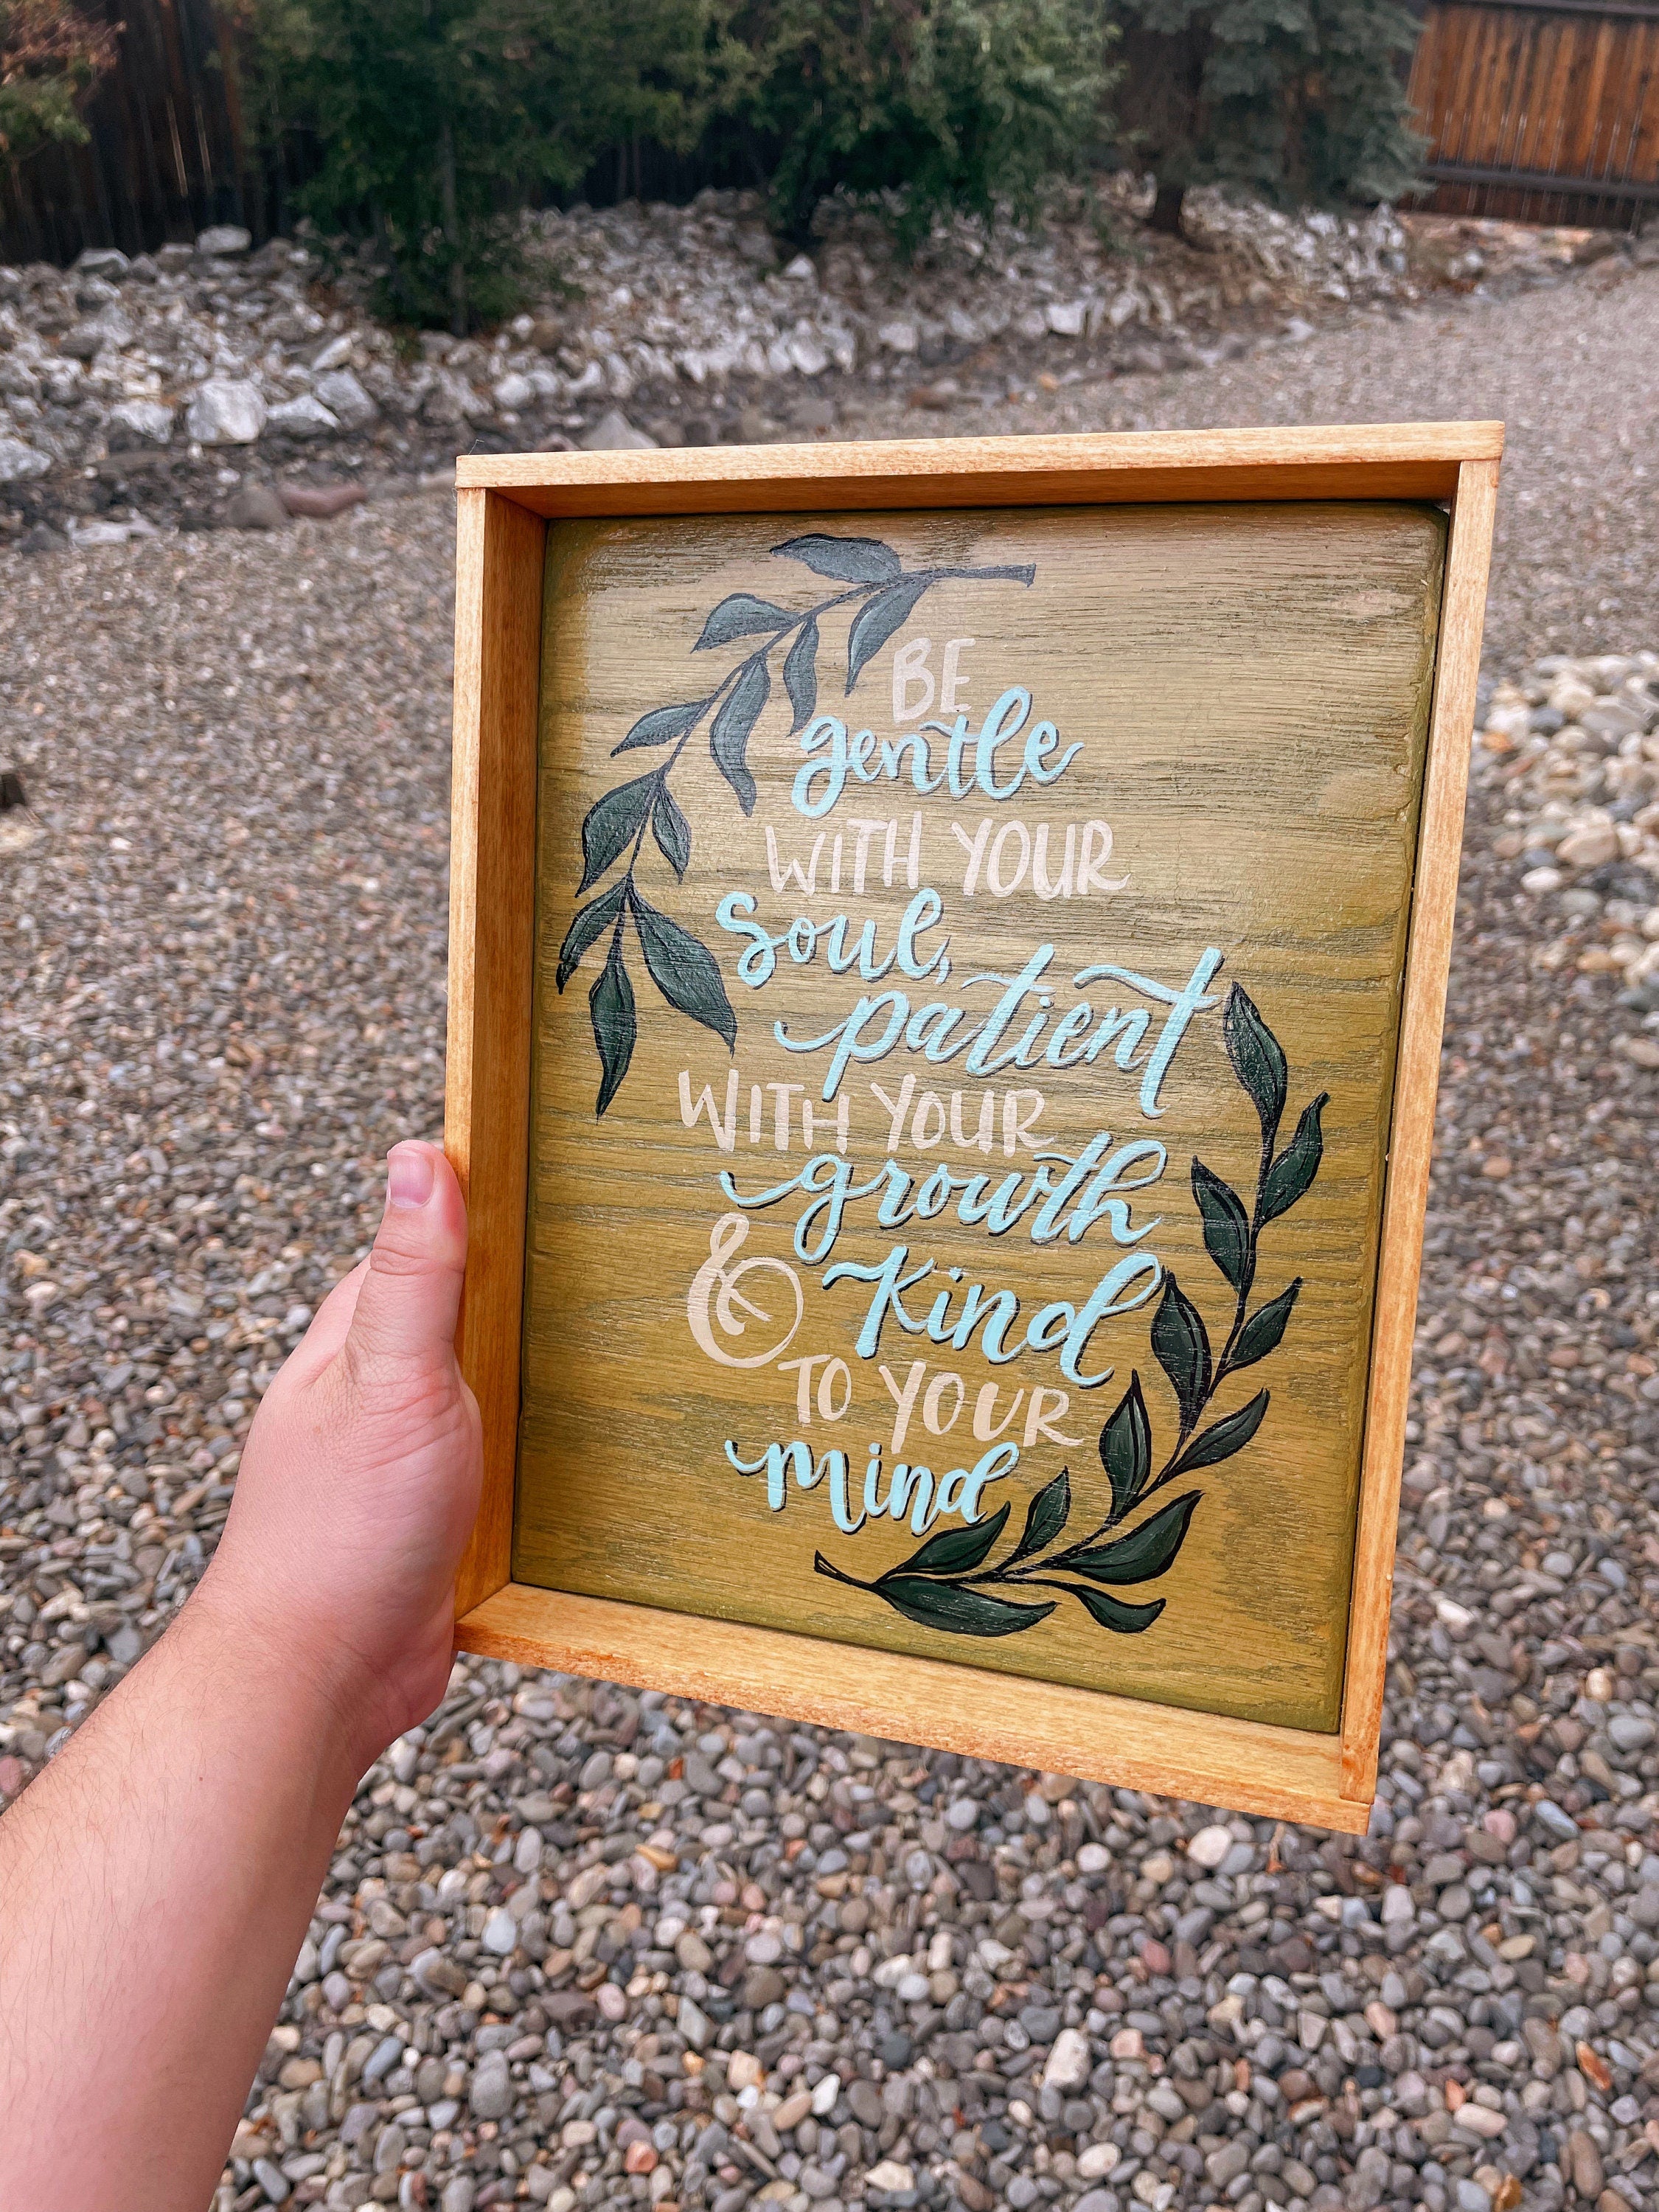 BE
gentle
WITH YOUR
soul,
patient
WITH YOUR
growth
& kind
TO YOUR
mind